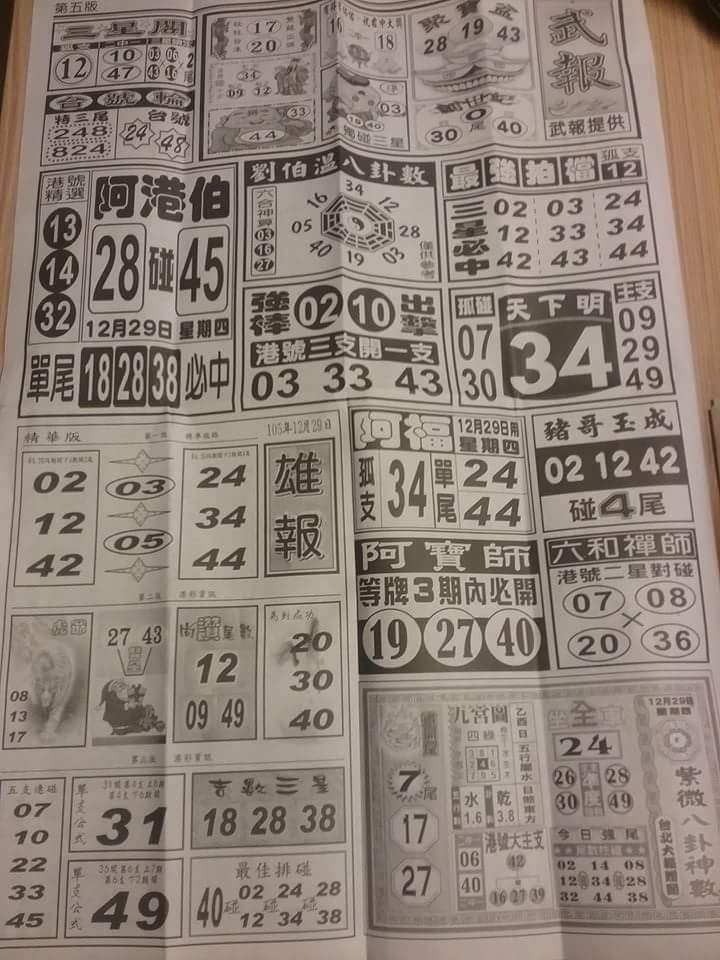 第五版
三星閣
12
10
47
03 06
43 16
台號輪
特三尾
248
824
台號
24
48
17
20
34
09 32
33
44
16
18
03
19 40
獨碰三星
聚寶盆
28 19 43
創世紀
0尾
30 40
武報
武報提供
港號
精選
13
14
32
阿港伯
28 碰 45
12月29日 星期四
單尾 18 28 38 必中
劉伯溫八卦數
六合神算
03
16
27
34
16 12
05 28
40 03
19
僅供參考
最強拍檔
孤支
12
三星必中
02 03 24
12 33 34
42 43 44
強棒 02 10 出擊
港號三支開一支
03 33 43
孤碰
07
30
天下明
34
主支
09
29
49
精華版
105年12月29日
02
12
42
03
05
24
34
44
雄報
阿福
12月29日用
星期四
孤支
34
單尾
24
44
豬哥玉成
02 12 42
碰4尾
阿寶師
等牌3期內必開
19 27 40
六和禪師
港號二星對碰
07 08
×
20 36
第二版
港彩資訊
虎爺
08
13
17
27 43
聖
讚
尾數
12
09 49
馬到成功
20
30
40
第三版
港彩資訊
五支連碰
07
10
22
33
45
單支公式
31
單支公式
49
吉數三星
18 28 38
最佳排碰
40 碰 02 12 碰 24 34 碰 28 38
7尾
17
27
九宮圖
四綠
3 8 1
2 4 6
7 9 5
乙酉日
五行屬水
日煞東方
水
1.6
乾
3.8
06
40
港號大主支
42
16 27 39
坐全車
24
26 28
30 49
今日強尾
02 14 08
12 34 28
32 44 38
12月29日
星期四
紫微八卦神數